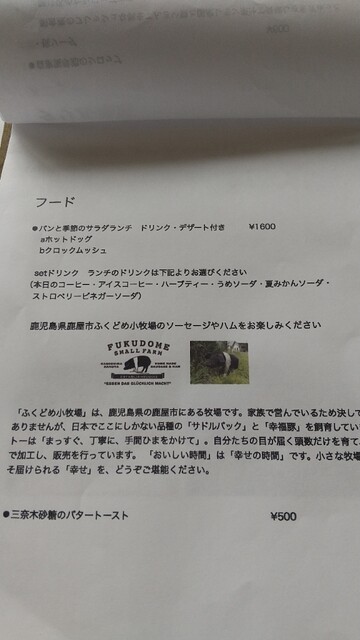 フード
●パンと季節のサラダランチ　ドリンク・デザート付き　¥1600
aホットドッグ
bクロックムッシュ
setドリンク　ランチのドリンクは下記よりお選びください
（本日のコーヒー・アイスコーヒー・ハーブティー・うめソーダ・夏みかんソーダ・
ストロベリービネガーソーダ）
鹿児島県鹿屋市ふくどめ小牧場のソーセージやハムをお楽しみください
FUKUDOME
SMALL FARM
"ESSEN DAS GLÜCKLICH MACHT"
「ふくどめ小牧場」は、鹿児島県の鹿屋市にある牧場です。家族で営んでいるため決して
ありませんが、日本でここにしかない品種の「サドルバック」と「幸福豚」を飼育してい
トーは「まっすぐ、丁寧に、手間ひまをかけて」。自分たちの目が届く頭数だけを育て
で加工し、販売を行っています。「おいしい時間」は「幸せの時間」です。小さな牧場
そ届けられる「幸せ」を、どうぞご堪能ください。
●三奈木砂糖のバタートースト　¥500